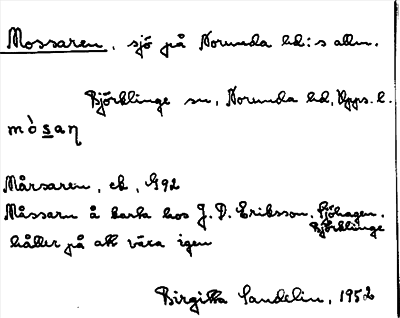 Mossaren, sjö på Norunda hd:s allm.
Björklinge sn, Norunda hd, Upps. l.
mòsaƞ
Mårsaren, ek, G92
Måssarn å karta hos J. D. Eriksson, Sjöhagen,
Björklinge
håller på att växa igen
Birgitta Sandelin, 1952